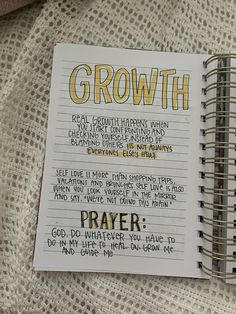 GROWTH
REAL GROWTH HAPPENS WHEN
YOU START CONFRONTING AND
CHECKING YOURSELF INSTEAD OF
BLAMING OTHERS. IT'S NOT ALWAYS
EVERYONE ELSE'S FAULT.
SELF LOVE IS MORE THAN SHOPPING TRIPS,
VACATIONS AND BRUNCHES. SELF LOVE IS ALSO
WHEN YOU LOOK YOURSELF IN THE MIRROR
AND SAY, "WE'RE NOT DOING THIS AGAIN."
PRAYER:
GOD, DO WHATEVER YOU HAVE TO
DO IN MY LIFE TO HEAL, GROW ME
AND GUIDE ME